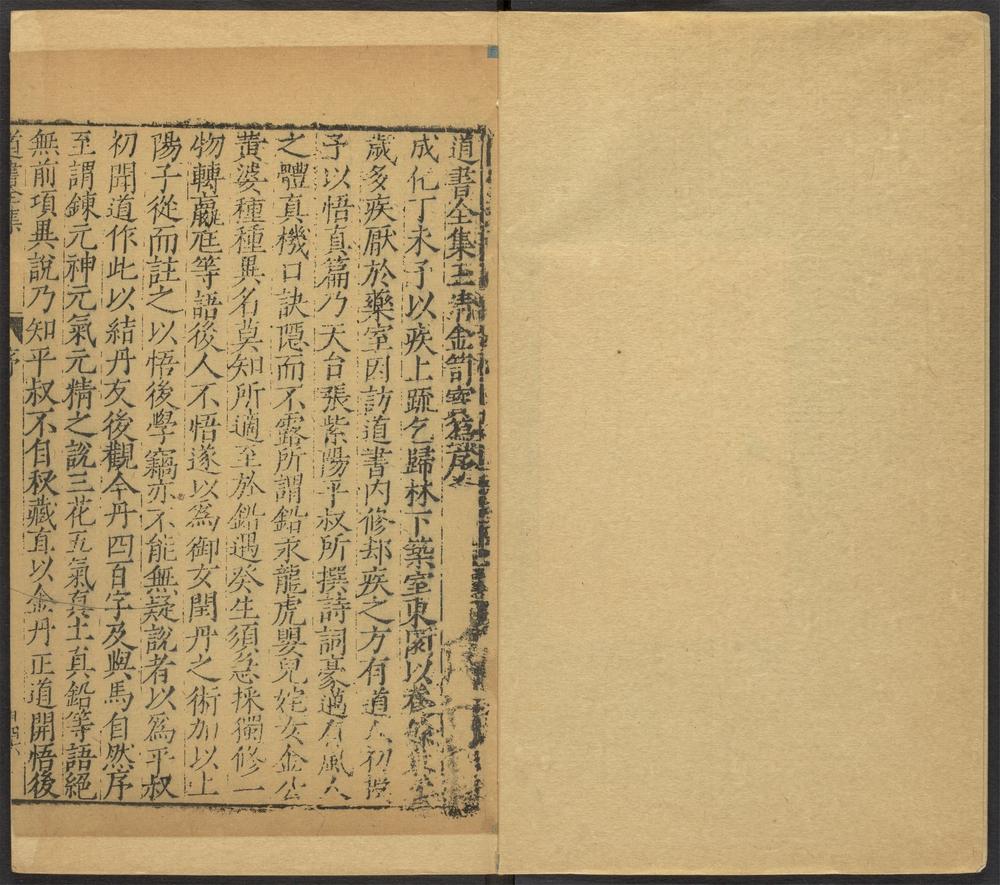 道書全集玉清金笥寶籙序
成化丁未予以疾上疏乞歸林下築室東園以養
歲多疾厭於藥室因訪道書内修却疾之方有道人初授
予以悟真篇乃天台張紫陽平叔所撰詩詞豪邁有風人
之體真機口訣隱而不露所謂鉛汞龍虎嬰兒姹女金公
黄婆種種異名莫知所適至於鉛遇癸生須急採獨修一
物轉羸尫等語後人不悟遂以爲御女閨丹之術加以上
陽子從而註之以悟後學竊亦不能無疑說者以爲平叔
初聞道作此以結丹友後觀今丹四百字及與馬自然序
至謂錬元神元氣元精之說三花五氣真土真鉛等語絕
無前項異說乃知平叔不自秘藏直以金丹正道開悟後
道書全集
序